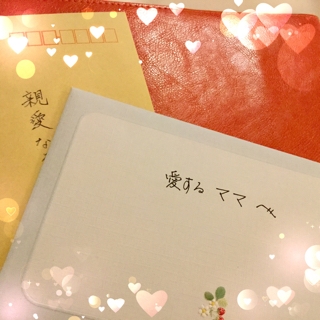 親愛な
愛するママへ